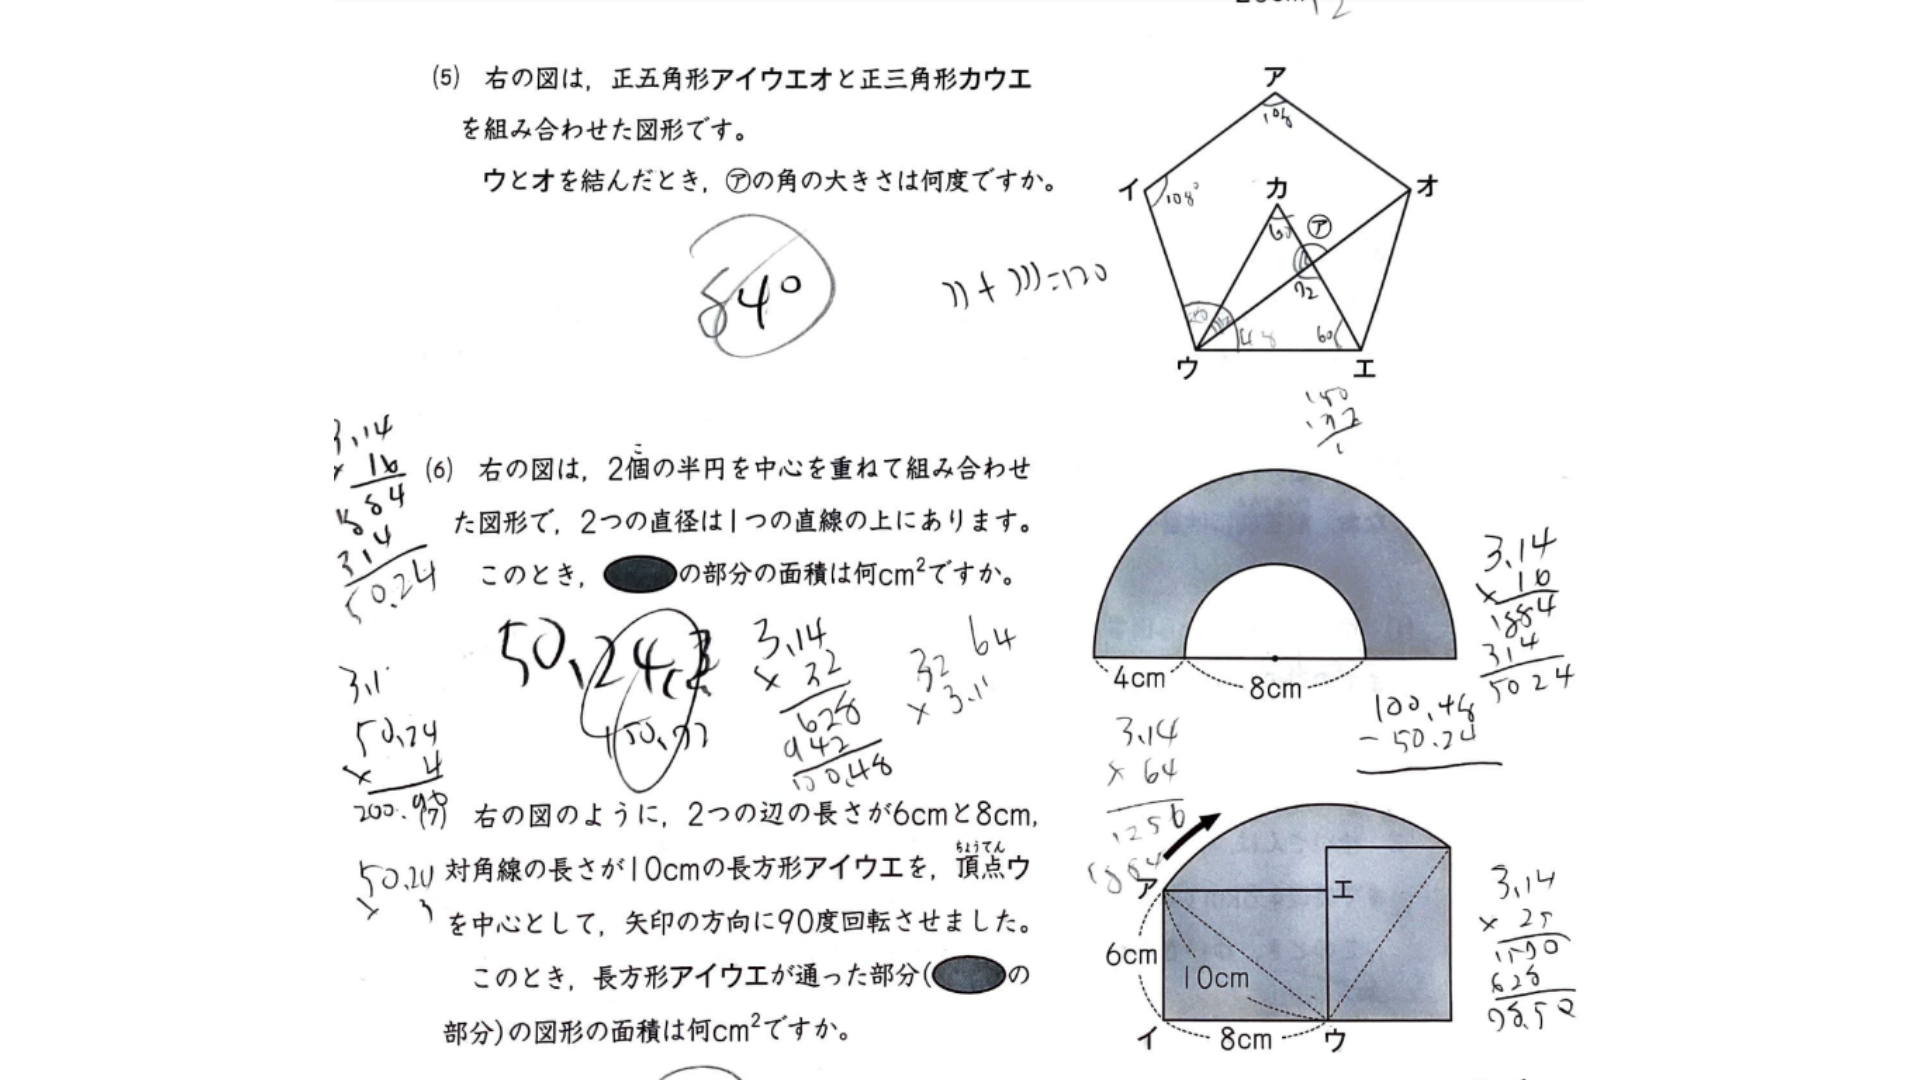 (5) 右の図は，正五角形アイウエオと正三角形カウエ
を組み合わせた図形です。
ウとオを結んだとき，㋐の角の大きさは何度ですか。
84°
)) + ))) = 120
ア
108
イ
108°
カ
オ
60
㋐
72
48
60
ウ
エ
(6) 右の図は，2個の半円を中心を重ねて組み合わせ
こ
た図形で，2つの直径は1つの直線の上にあります。
このとき，の部分の面積は何cm²ですか。
3.14
× 16
1884
314
50.24
50.24
3.14
× 32
628
942
100.48
64
32
4cm
8cm
3.14
× 16
1884
314
5024
100.48
- 50.24
50.24
× 4
200.96
50.24
3
3.14
× 64
1256
(7) 右の図のように，2つの辺の長さが6cmと8cm，
対角線の長さが10cmの長方形アイウエを，頂点ウ
ちょうてん
を中心として，矢印の方向に90度回転させました。
このとき，長方形アイウエが通った部分(の
部分)の図形の面積は何cm²ですか。
ア
エ
6cm
10cm
イ
8cm
ウ
3.14
× 25
1570
628
78.50